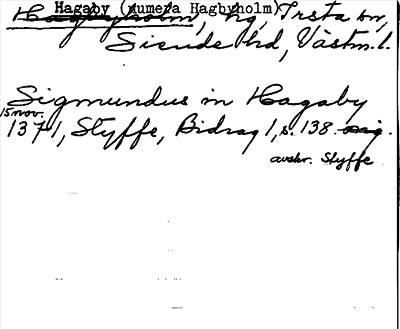 Hagaby (numera Hagbyholm)
Hagbyholm, hg, Irsta sn,
Siende hd, Västm. l.
Sigmundus in Hagaby
15 nov.
1371, Styffe, Bidrag 1, s. 138. sig.
avskr. Styffe